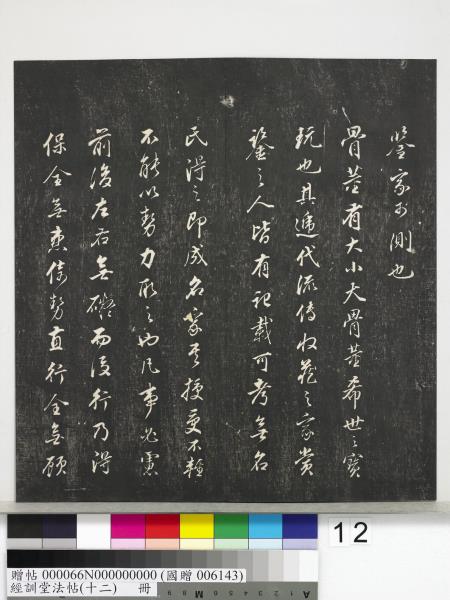 鑒家可測也
骨董有大小大骨董希世之寶
玩也其遞代流傳收藏之家賞
鑒之人皆有記載可考無名
氏得之即成名家其授受不輕
不能以勢力取之也凡事必慮
前後左右無礙而後行乃得
保全無患倚勢直行全無顧
12
贈帖 000066N000000000 (國贈 006143)
經訓堂法帖(十二) 冊
A